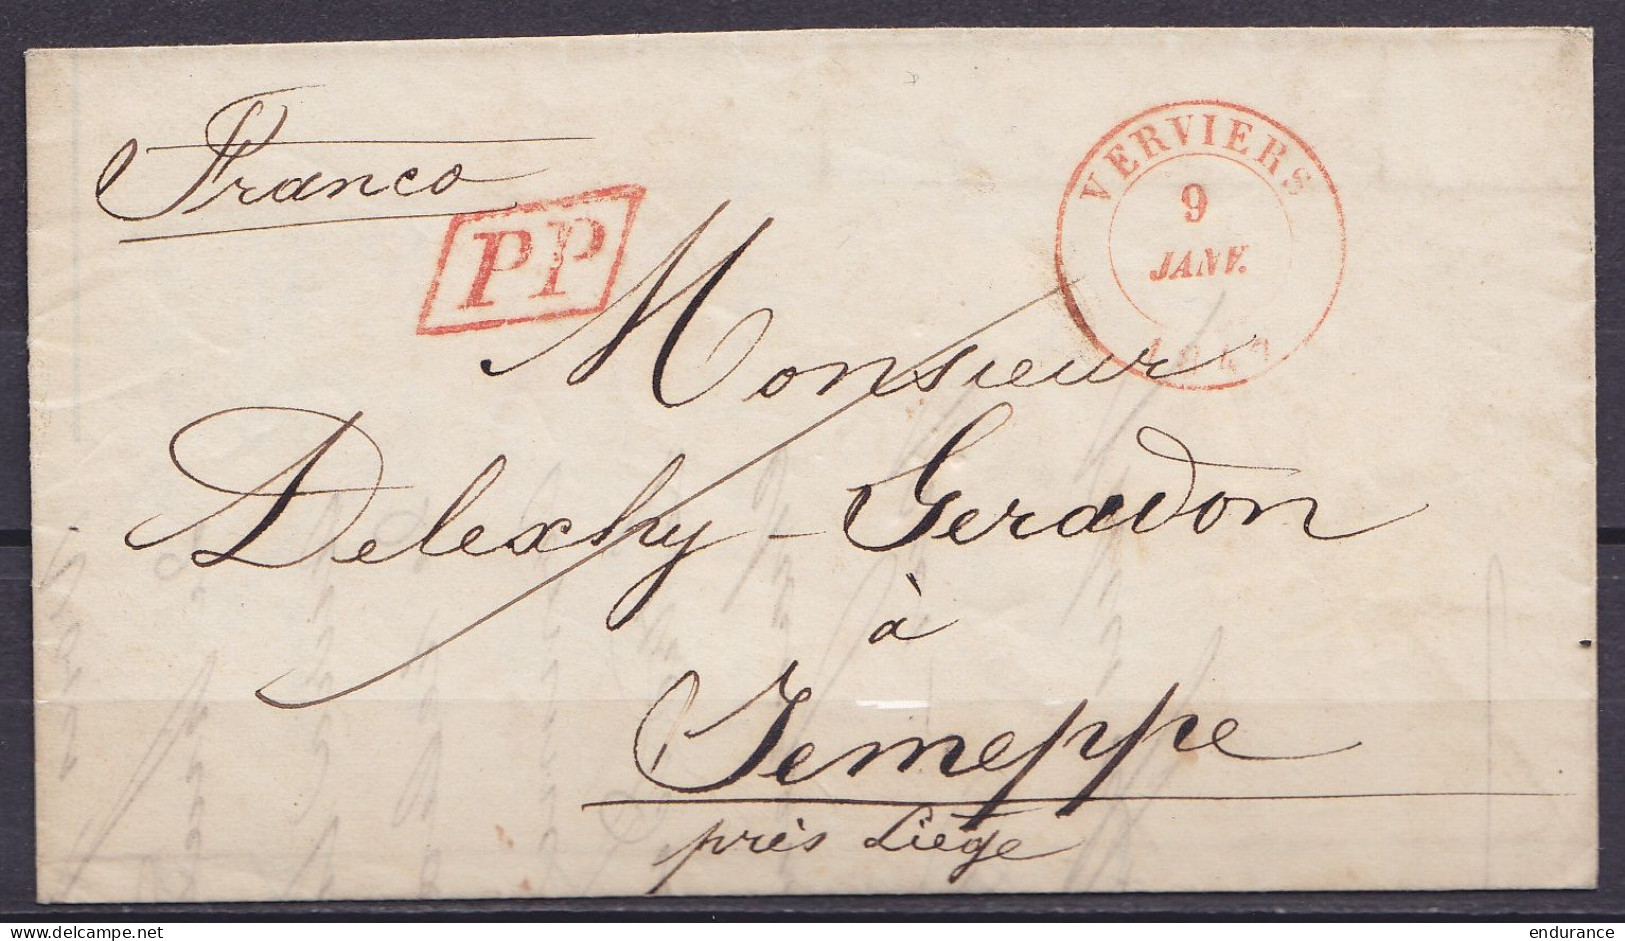 Franco
PP
VERVIERS
9
JANV.
Monsieur
Delexhy-Geradon
à
Jemeppe
près Liège
delcampe.net
endurance